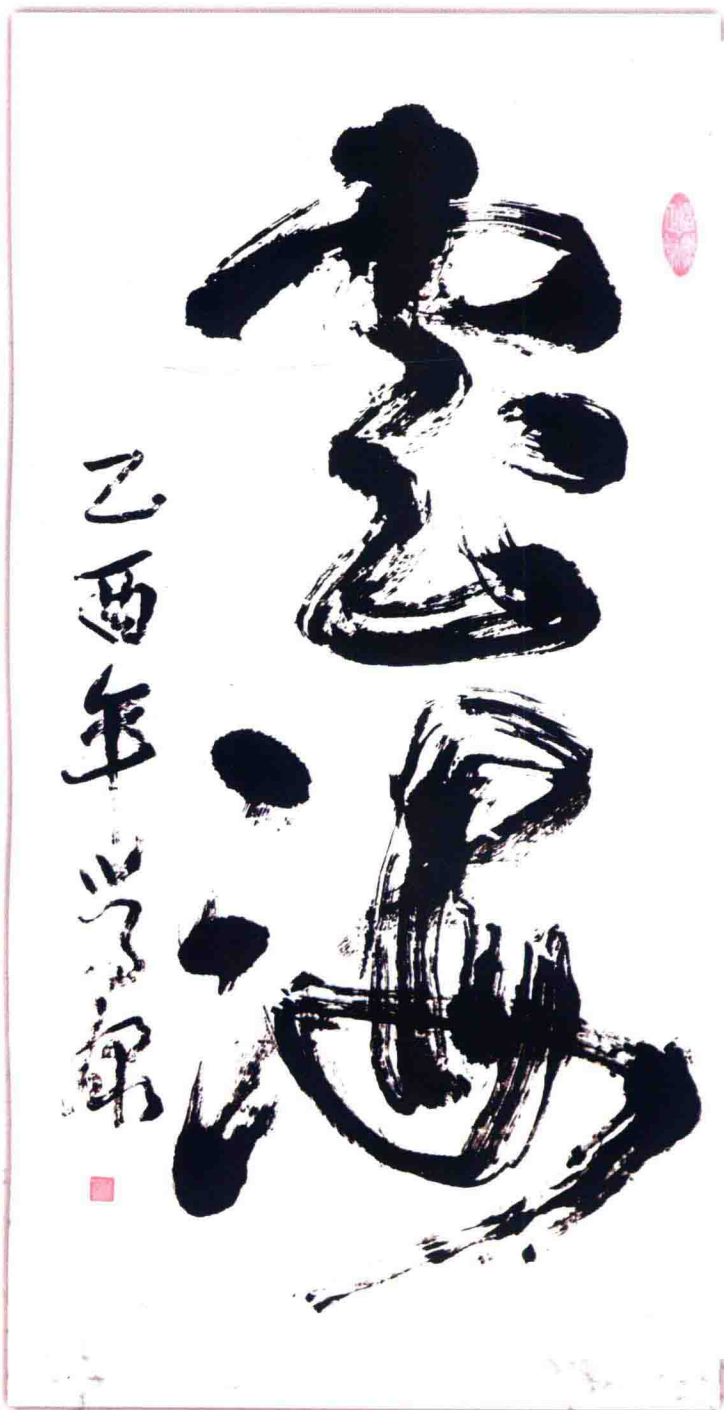 雲海
乙酉年